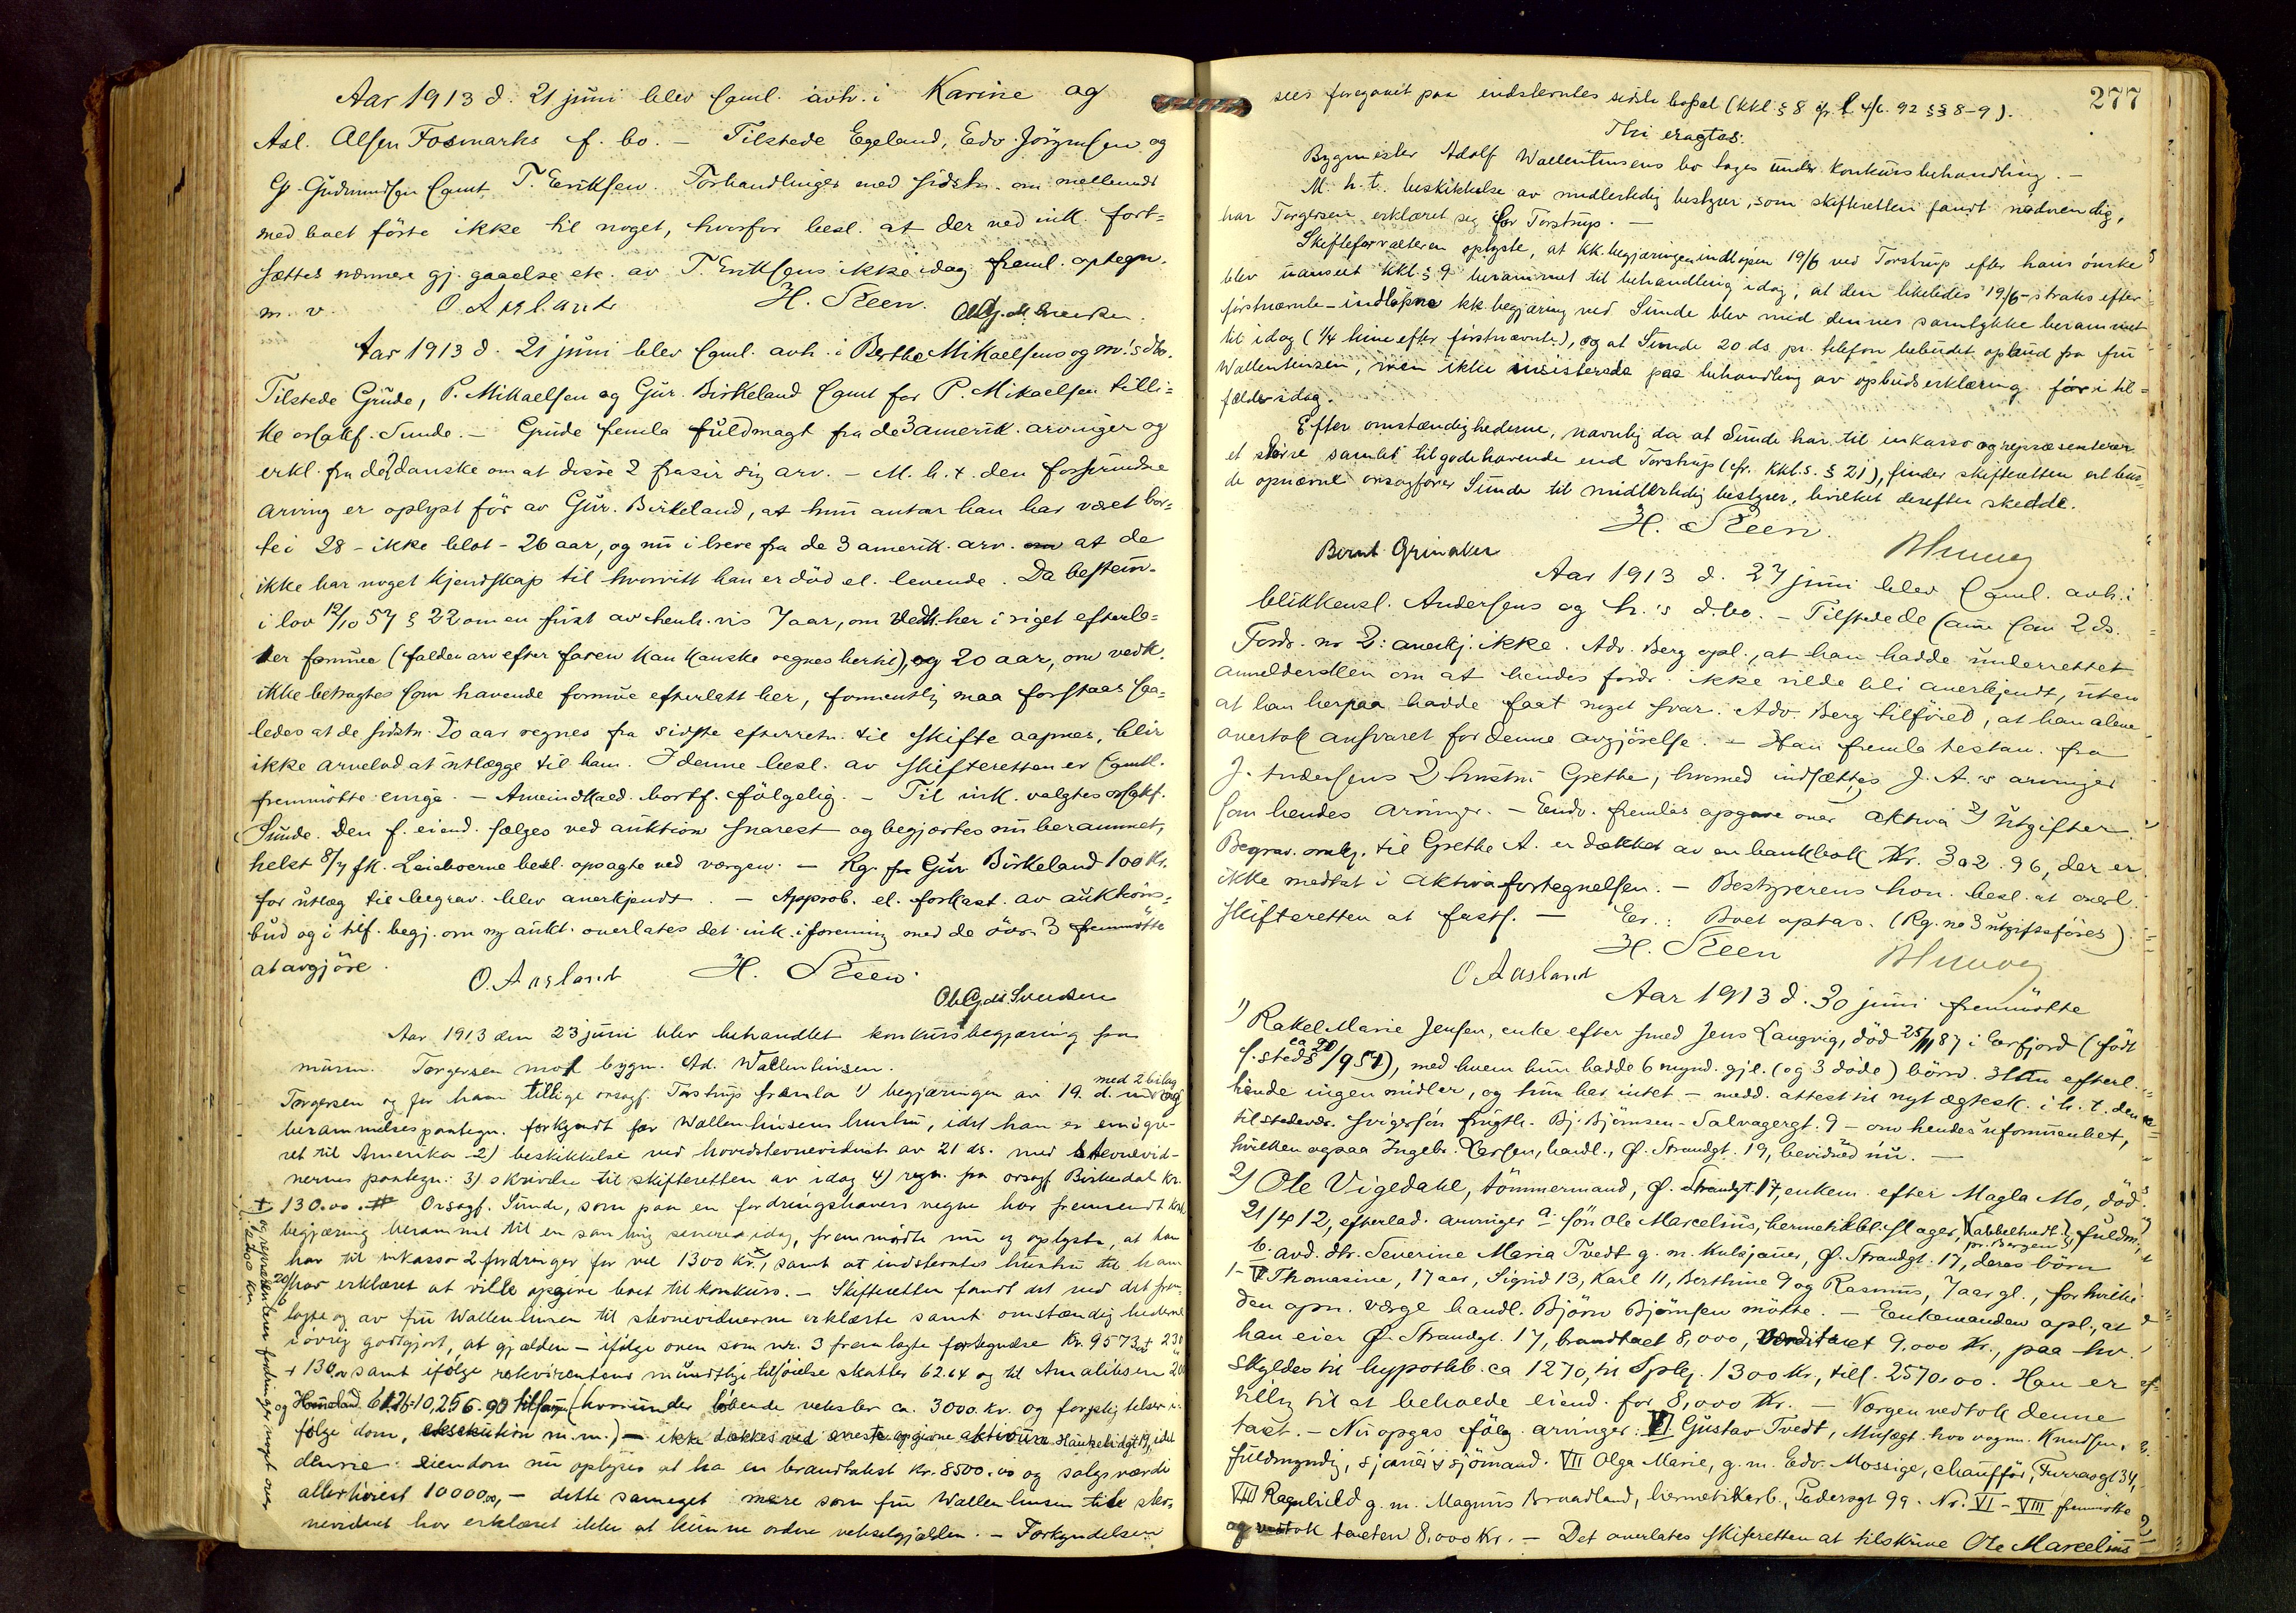 Aar 1913 d. 21 juni blev saml. avh. i Karine og
Asl. Olsen Fosmarks f. bo. – Tilstede Egeland, Edv. Jörgensen og
G. Gudmundsen samt T. Eriksen. Forhandlinger med sidstn. om mellemv.
med boet förte ikke til noget, hvorfor besl. at der ved ink. fort-
sættes nærmere gj. gaaelse etc. av T. Eriksens ikke idag freml. optegn.
m. v. O. Aasland H. Steen.
Aar 1913 d. 21 juni blev saml. avh. i Berthe Mikaelsens og m's dbo.
Tilstede Grude, P. Mikaelsen og Gur. Birkeland samt for P. Mikaelsen tilli-
ke orsakf. Sunde. – Grude fremla fuldmagt fra de 3 amerik. arvinger og
erkl. fra de 2 danske om at disse 2 frasir sig arv. – M. h. t. den forsvundne
arving er oplyst för av Gur. Birkeland, at hun antar han har været bor-
te i 28 – ikke blot – 26 aar, og nu i breve fra de 3 amerik. arv. at de
ikke har noget kjendskap til hvorvidt han er död el. levende. Da bestem-
i lov 12/10 57 § 22 om en frist av henh.vis 7 aar, om vedk. her i riget efterla-
ter formue (falden arv efter faren kan kanske regnes hertil), og 20 aar, om vedk.
ikke betragtes som havende formue efterlatt her, formentlig maa forstaaes saa-
ledes at de sidstn. 20 aar regnes fra sidste efterretn. til skifte aapnes, blir
ikke arvelod at utlægge til ham. I denne besl. av skifteretten er samtl.
fremmötte enige. – Arveindkald. bortf. fölgelig. – Til ink. valgtes orsakf.
Sunde. Den f. eiend. sælges ved auktion snarest og begjærtes nu berammet,
helst 8/7 fk. Leieboerne besl. opsagte ved værgen. – Rg. fra Gur. Birkeland 100 Kr.
for utlæg til begrav. blev anerkjendt. – Approb. el. forkast. av auktions-
bud og i tilf. begj. om ny aukt. overlates det ink. i forening med de övr. 3 fremmötte
at avgjöre.
O. Aasland H. Steen
Ole Svendsen
Aar 1913 den 23 juni blev behandlet konkursbegjæring fra
murm. Torgersen mot bygm. Ad. Wallentinsen.
med 2 bilag
Torgersen og for ham tillige orsagf. Torstrup fremla 1) begjæringen av 19. d. md og
berammelsespaategn. forkyndt for Wallentinsens hustru, idet han er emigre-
ret til Amerika 2) beskikkelse ved hovedstevnevidnet av 21 ds. med stevnevid-
nernes paategn. 3) skrivelse til skifteretten av idag 4) regn. fra orsagf Birkedal kr.
130.00. Orsagf. Sunde, som paa en fordringshavers vegne har fremsendt kk.
begjæring berammet til en samling senere idag, fremmödte nu og oplyste, at han
har til inkasso 2 fordringer for vel 1300 kr., samt at indstevntes hustru til ham
20/6 har erklæret at ville opgive boet til konkurs. – Skifteretten fandt det ved det frem-
lagte og av fru Wallentinsen til stevnevidnerne erklærte samt omstændighederne
iövrig godtgjort, at gjælden – ifölge oven som nr. 3 fremlagte fortegnelse kr. 9573
+ 130.00 samt ifölge rekvirentens mundtlige tilföielse skatter 62.64 og til Amaliksen
og
10,256.90 tilsam. (hvorunder löbende veksler ca. 3000 kr. og forpligtelser i-
fölge dom, eksekution m. m.) – ikke dækkes ved eneste opgivne aktivum Haukelidgt 19, idet
denne eiendom nu oplyses at ha en brandtakst kr. 8500.00 og salgsværdi
allerhöiest 10000.00, – dette saameget mere som fru Wallentinsen til stev-
nevidnet har erklæret ikke at kunne ordne vekselgjælden. – Forkyndelsen
og repræsenterer fordringer noget over
277
sees foregaaet paa indstevntes sidste bopæl (kkl. § 8 jfr. l. 4/6. 92 §§ 8-9).
Thi eragtes:
Bygmester Adolf Wallentinsens bo tages under konkursbehandling. –
M. h. t. beskikkelse av midlertidig bestyrer, som skifteretten fandt nödvendig,
har Torgersen erklæret sig for Torstrup. –
Skifteforvalteren oplyste, at kk. begjæringen indlöpen 19/6 ved Torstrup efter hans önske
blev uanseet kkl. § 9 berammet til behandling idag, at den likeledes 19/6 – straks efter
förstnævnte – indlöpne kk. begjæring ved Sunde blev med dennes samtykke berammet
til idag (1/4 time efter förstnævnte), og at Sunde 20 ds. pr. telefon bebudet opbud fra fru
Wallentinsen, men ikke insisterede paa behandling av opbudserklæring för i til-
fælde idag.
Efter omstændighederne, navnlig da at Sunde har til inkasso og repræsenterer
et större samlet tilgodehavende end Torstrup (cfr. kkl.s. § 21), finder skifteretten at bur-
de opnævne orsagförer Sunde til midlertidig bestyrer, hvilket derefter skedde.
H. Steen.
Bernt Grinaker
Aar 1913 d. 27 juni blev saml. avh. i
blikkensl. Andersens og h.'s d.bo. – Tilstede de samme som 2 ds.
Fordr. no 2: anerkj. ikke. Adv. Berg opl., at han hadde underrettet
anmeldersken om at hendes fordr. ikke vilde bli anerkjendt, uten
at han herpaa hadde faat noget svar. Adv. Berg tilföied, at han alene
overtok ansvaret for denne avgjörelse. – Han fremla testam. fra
J. Andersens 2 hustru Grethe, hvormed indsættes J. A.'s arvinger
som hendes arvinger. – Endv. fremlas opgave over aktiva & utgifter.
Begrav. omk. til Grethe A. er dækket av en bankbok Kr. 302.96, der er
ikke medtat i aktivafortegnelsen. – Bestyrerens hon. besl. at overl.
skifteretten at fasts. – Eer.: Boet optas. (Rg. no 3 utgiftsföres)
H. Steen
O. Aasland
Aar 1913 d. 30 juni fremmötte
1) Rakel Marie Jensen, enke efter smed Jens Langvig, död 25/11 87 i Erfjord (födt
s. steds ca 20/9 57), med hvem hun hadde 6 mynd. gjl. (og 3 döde) börn. Han efterl.
hende ingen midler, og hun har intet – medd. attest til nyt ægtesk. i h. t. den
tilstedevær. svigersön frugth. Bj. Björnsen – Salvagergt. 9 – om hendes uformuenhet,
hvilken ogsaa Ingebr. Larsen, handl., Ö. Strandgt. 19, bevidned nu. –
2) Ole Vigedahl, tömmermand, Ö. Strandgt. 17, enkem. efter Magla Mo, död
21/4 12, efterlad. arvinger a. sön Ole Marcelius, hermetikbl. slager, Kabbelhvedt. pr. Bergen, fuldm.,
b. avd. dtr. Severine Maria Tvedt g. m. Kulsjauer, Ö. Strandgt. 17, deres börn
1-V Thomasine, 17 aar, Sigrid 13, Karl 11, Berthine 9 og Rasmus, 7 aar gl., for hvilke
den opn. værge handl. Björn Björnsen mötte. – Enkemanden opl., at
han eier Ö. Strandgt. 17, brandtaxt 8,000, Værditaxt 9.000 Kr., paa hv.
skyldes til hypothb. ca 1270, til Spbk. 1300 Kr., tils. 2570.00. Han er
villig til at beholde eiend. for 8,000 Kr. – Værgen vedtok denne
taxt. – Nu opgas fölg. arvinger: VI Gustav Tvedt, Musegt. hos vognm. Knudsen,
fuldmyndig, sjauer & sjömand. VII Olga Marie, g. m. Edv. Mossige, chaufför, Furrasgt 34,
VIII Ragnhild g. m. Magnus Braadland, hermetikarb., Pedersgt 99. Nr. VI – VIII fremmötte
og vedtok taxten 8,000 Kr. – Det overlates skifteretten at tilskrive Ole Marcelius